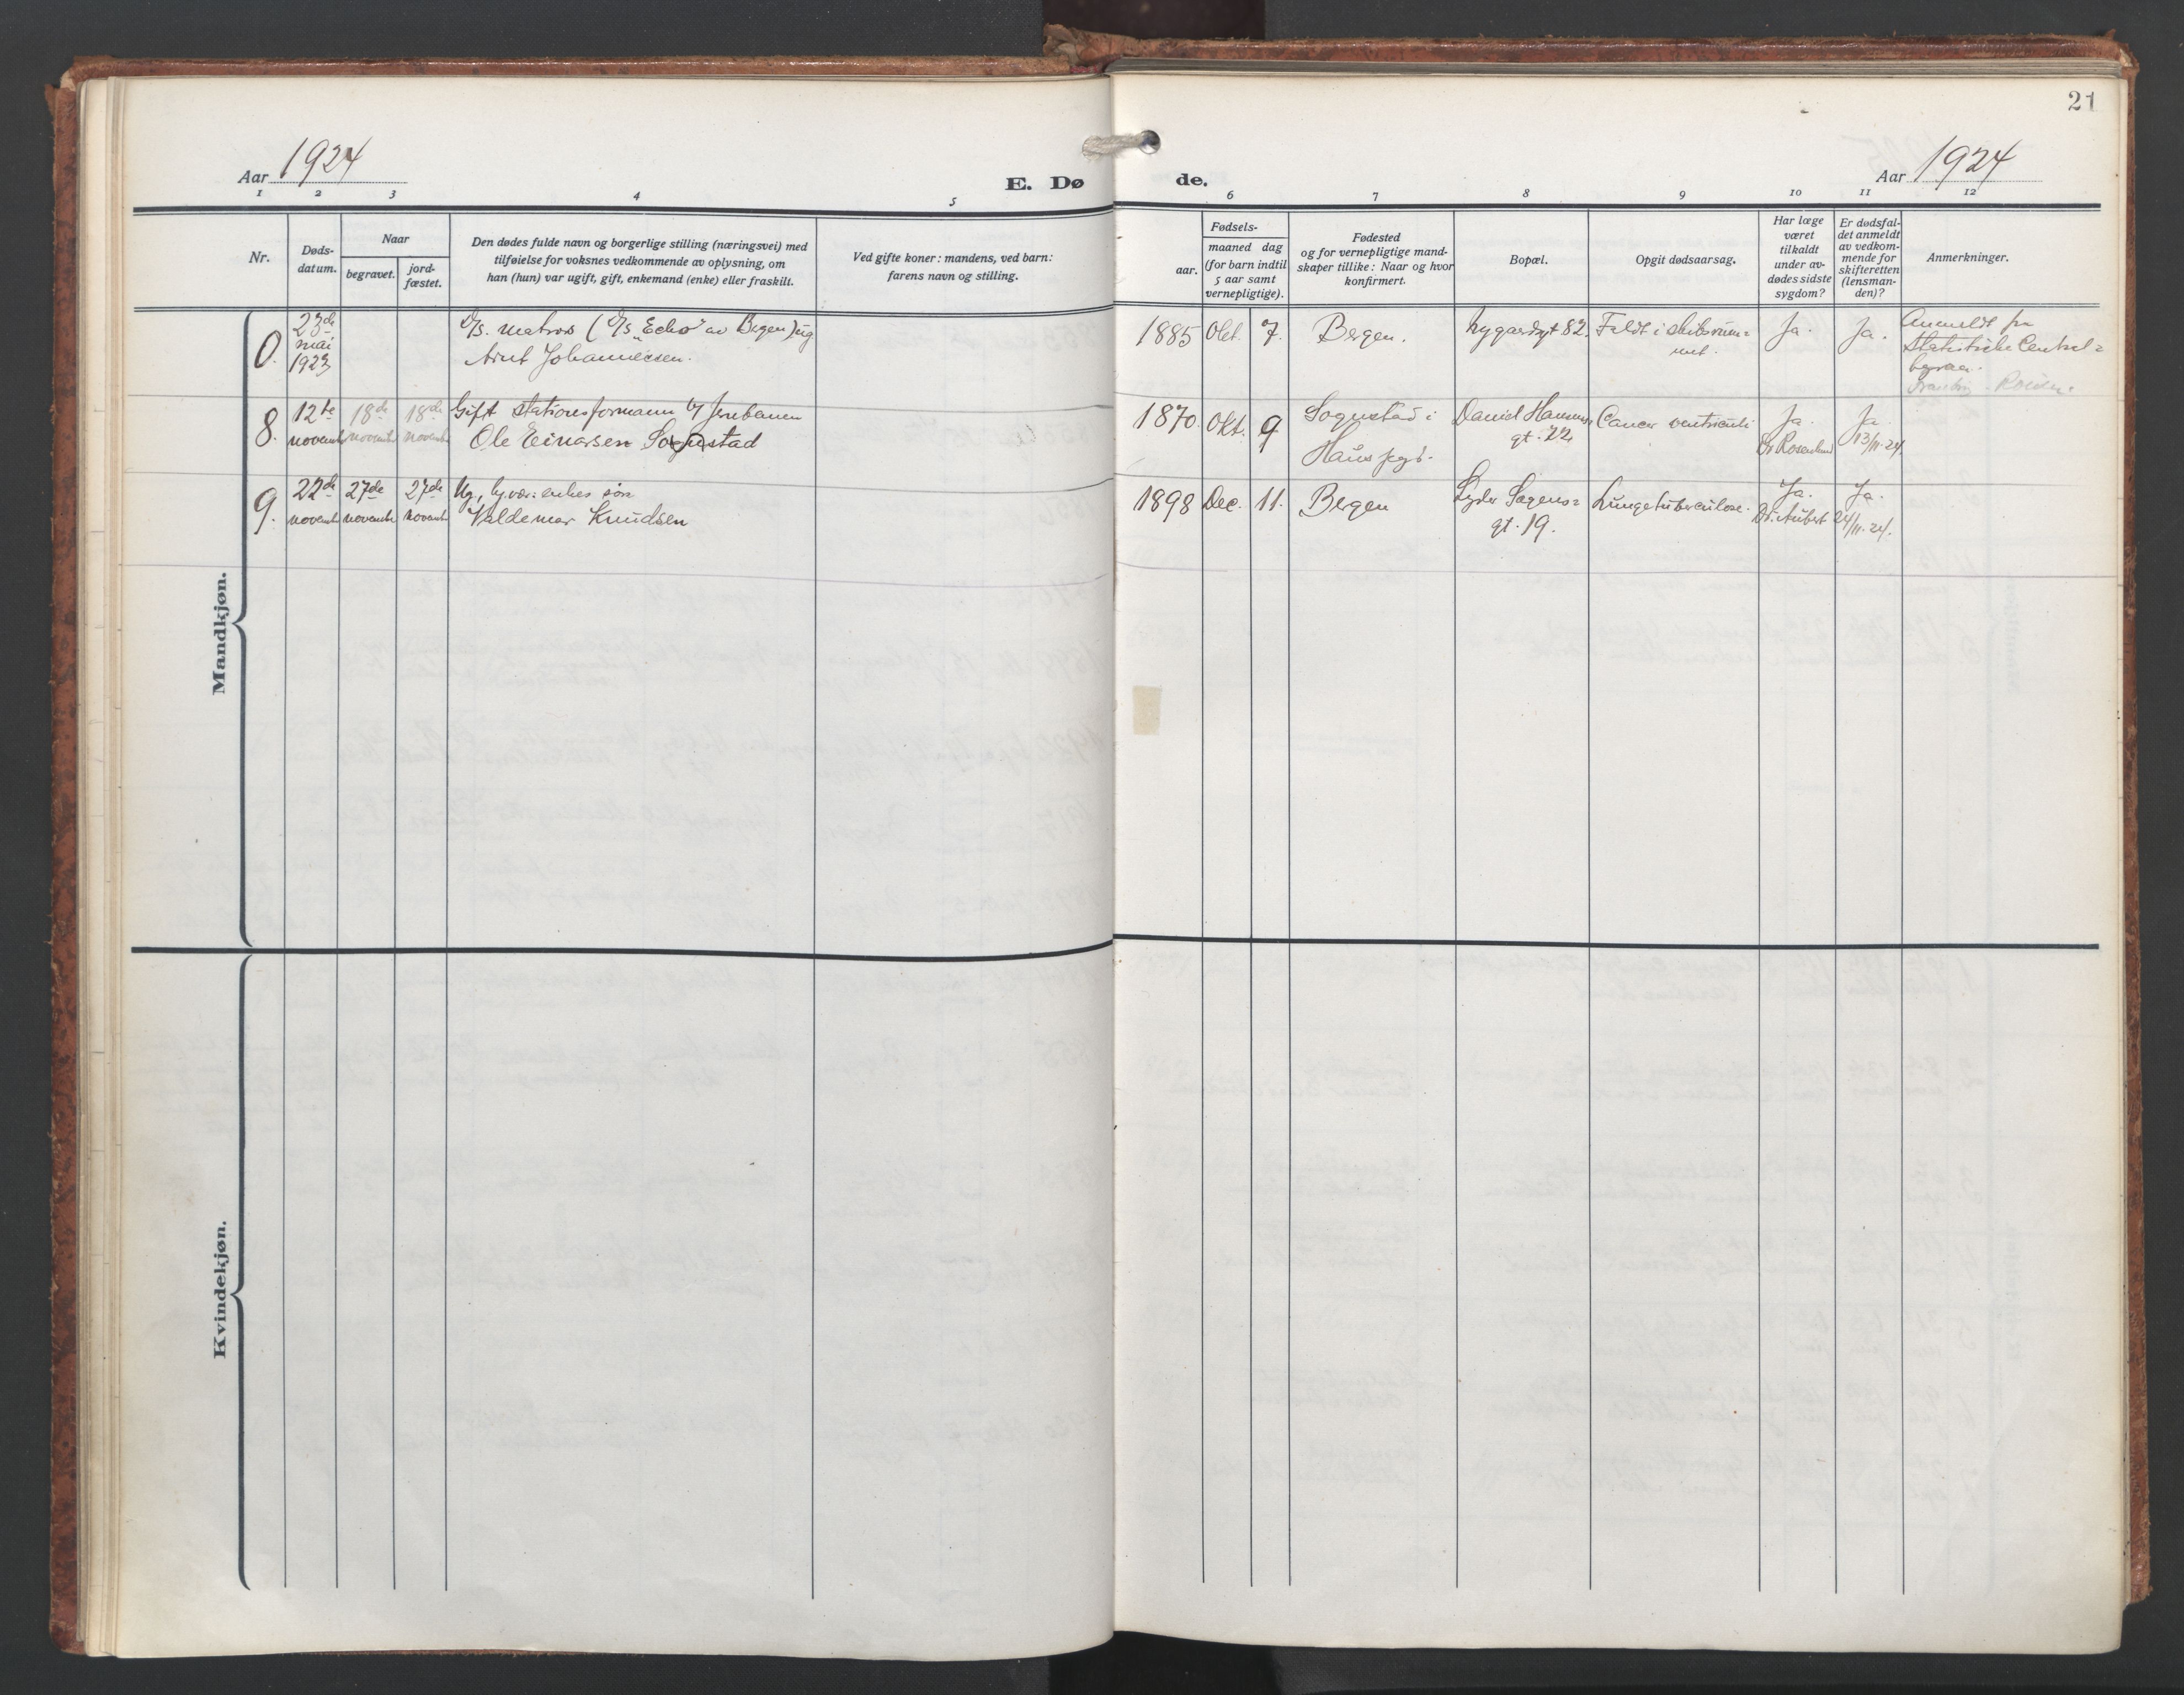 21
Aar 1924
E. Døde.
Aar 1924
1 2 3 4 5 6 7 8 9 10 11 12
Nr.
Døds-
datum.
Naar
begravet.
jord-
fæstet.
Den dødes fulde navn og borgerlige stilling (næringsvei) med
tilføielse for voksnes vedkommende av oplysning, om
han (hun) var ugift, gift, enkemand (enke) eller fraskilt.
Ved gifte koner: mandens, ved barn:
farens navn og stilling.
Fødsels-
aar.
maaned dag
(for barn indtil
5 aar samt
vernepligtige).
Fødested
og for vernepligtige mand-
skaper tillike: Naar og hvor
konfirmert.
Bopæl.
Opgit dødsaarsag.
Har læge
været
tilkaldt
under av-
dødes sidste
sygdom?
Er dødsfal-
det anmeldt
av vedkom-
mende for
skifteretten
(lensman-
den)?
Anmerkninger.
Mandkjøn.
0.
23de
mai
1923
D/S. matros (D/S "Echo" av Bergen) ug
Arnt Johannessen.
1885 Okt. 7. Bergen.
Nygaardsgt 82.
Faldt i skibsrum=
met.
Ja.
Ja.
Anmeldt fra
Statistiske Central=
byraa.
8.
12te
novemb
18de
novemb
18de
novemb
Gift stationsformann v/ Jernbanen
Ole Einarsen Sognstad
1870. Okt. 9
Sognstad i
Haus pgd.
Daniel Hansens
gt. 22
Cancer ventriculi
Ja.
Dr Rosenlund
Ja
13/11-24.
9.
22de
novemb
27de
novemb
27de
novemb
Ug, hj.vær. enkes søn
Valdemar Knudsen
1898 Dec. 11. Bergen
Lyder Sagens=
gt. 19.
Lungetuberculose.
Ja.
Dr. Aubert
Ja.
24/11-24.
Kvindekjøn.